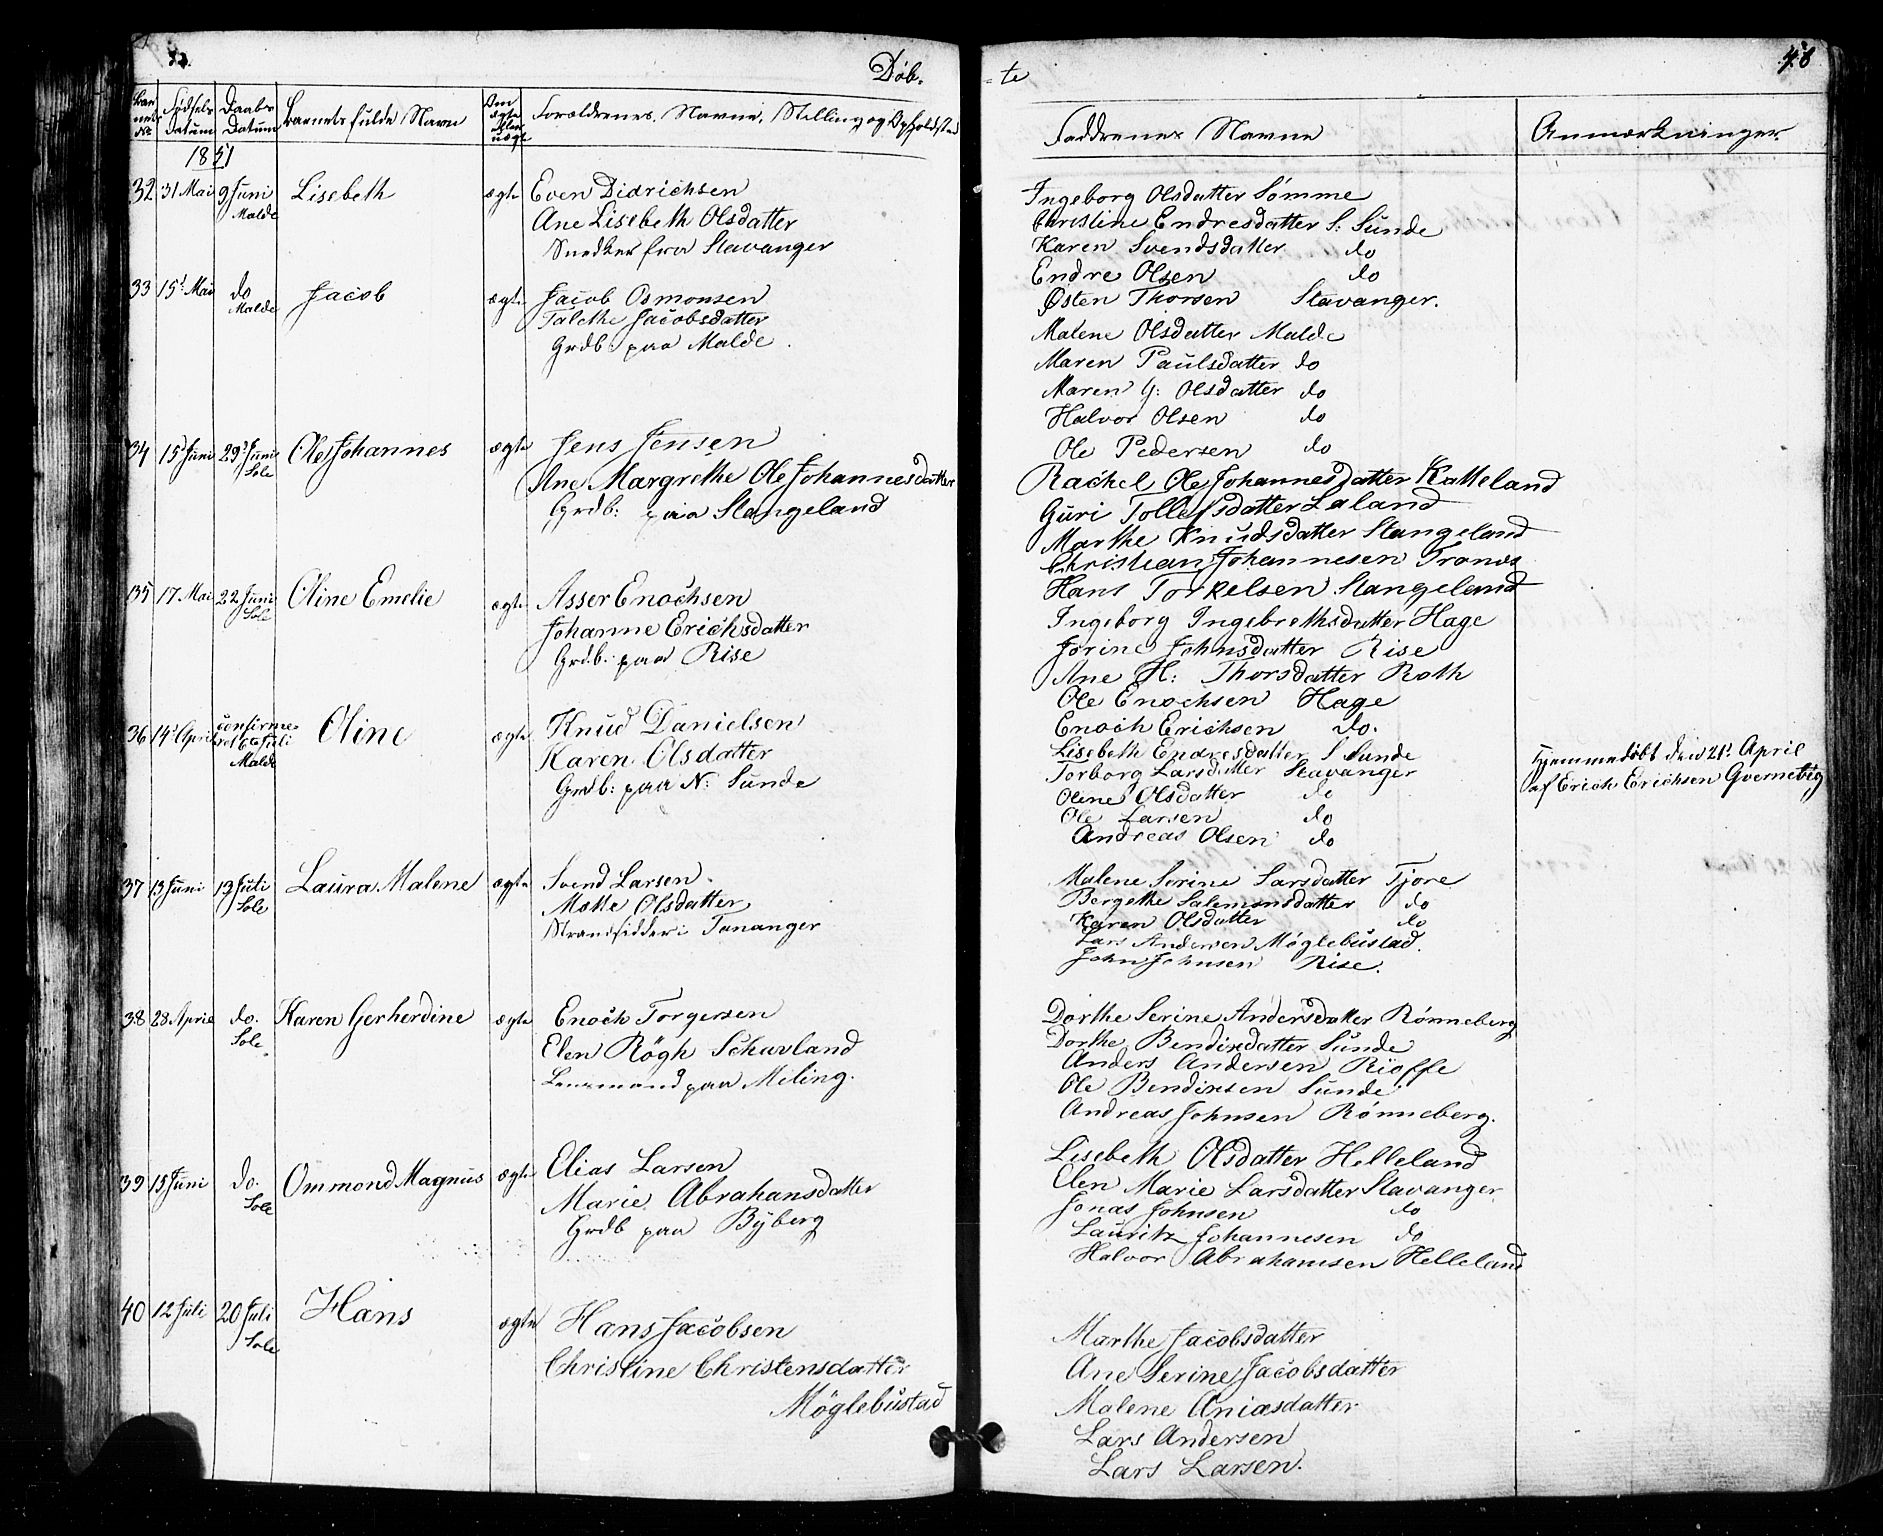 Døb-
Barnets No
Fødsels Datum
Daabs Datum
Barnets fulde Navn
Om ægte eller uægte
Forældrenes Navne, Stilling og Opholdsted
1851
32 31 Mai 9 Juni Malde Lisebeth ægte Even Didrichsen
Ane Lisebeth Olsdatter
Snedker fra Stavanger
33 15' Mai do Malde Jacob ægte Jacob Osmonsen
Talethe Jacobsdatter
Grdb: paa Malde
34 15' Juni 29' Juni Sole Ole Johannes ægte Jens Jensen
Ane Margrethe Ole Johannesdatter
Grdb: paa Stangeland
35 17 Mai 22 Juni Sole Oline Emelie ægte Asser Enochsen
Johanne Erichsdatter
Grdb: paa Rise
36 14' April confirmeret 6te Juli Malde Oline ægte Knud Danielsen
Karen Olsdatter
Grdb: paa N: Sunde
37 13 Juni 19 Juli Sole Laura Malene ægte Svend Larsen
Mette Olsdatter
Strandsidder i Tananger
38 28 April do. Sole Karen Gerherdine ægte Enoch Torgersen
Elen Røgh Schavland
Lensmand paa Meling.
39 15 Juni do. Sole Ommond Magnus ægte Elias Larsen
Marie Abrahamsdatter
Grdb paa Byberg
40 12 Juli 20 Juli Sole Hans ægte Hans Jacobsen
Christine Christensdatter
Møglebustad
-te
48
Faddrenes Navne
Anmærkninger.
Ingeborg Olsdatter Sømme
Christine Endresdatter S: Sunde
Karen Svendsdatter do
Endre Olsen do
Østen Thorsen Stavanger.
Malene Olsdatter Malde
Maren Paulsdatter do
Maren G: Olsdatter do
Halvor Olsen do
Ole Pedersen do
Rachel Ole Johannesdatter Katteland
Guri Tollefsdatter Laland
Marthe Knudsdatter Stangeland
Christian Johannesen Tranes
Hans Torkelsen Stangeland
Ingeborg Ingebrethsdatter Hage
Jorine Johnsdatter Rise
Ane H: Thorsdatter Roth
Ole Enochsen Hage
Enoch Erichsen do.
Lisebeth Endresdatter S Sunde
Torborg Larsdatter Stavanger
Olene Olsdatter do
Ole Larsen do
Andreas Olsen do
Hjemmedøbt den 21' April
af Erich Erichsen Gvernetig
Malene Serine Larsdatter Tjore
Bergethe Salemonsdatter do
Karen Olsdatter do
Lars Andersen Møglebustad.
John Johnsen Rise.
Dorthe Serine Andersdatter Rønneberg
Dorthe Bendixdatter Sunde
Anders Andersen Risffe
Ole Bendixsen Sunde
Andreas Johnsen Rønneberg.
Lisebeth Olsdatter Helleland
Elen Marie Larsdatter Stavanger
Jonas Johnsen do
Lauritz Johannesen do
Halvor Abrahamsen Helleland
Marthe Jacobsdatter
Ane Serine Jacobsdatter
Malene Aniasdatter
Lars Andersen
Lars Larsen.